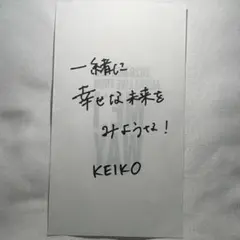 一緒に
幸せな未来を
みようせ!
KEIKO